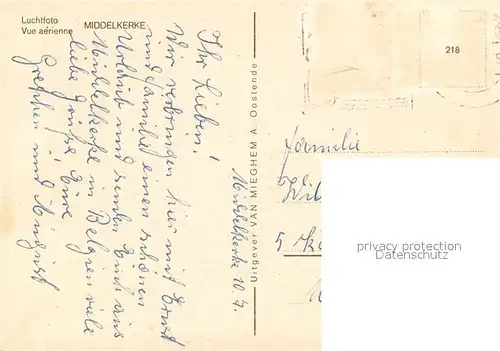 Luchtfoto
Vue aérienne
MIDDELKERKE
Ihr Lieben!
Wir verbringen hier mit Ernst
und Familie einen schönen
Urlaub und senden Euch aus
Middelkerke in Belgien viele
liebe Grüße Eure
Gretchen und August
Middelkerke 10.7.
Uitgever VAN MIEGHEM A. Oostende
218
Familie
5
privacy protection